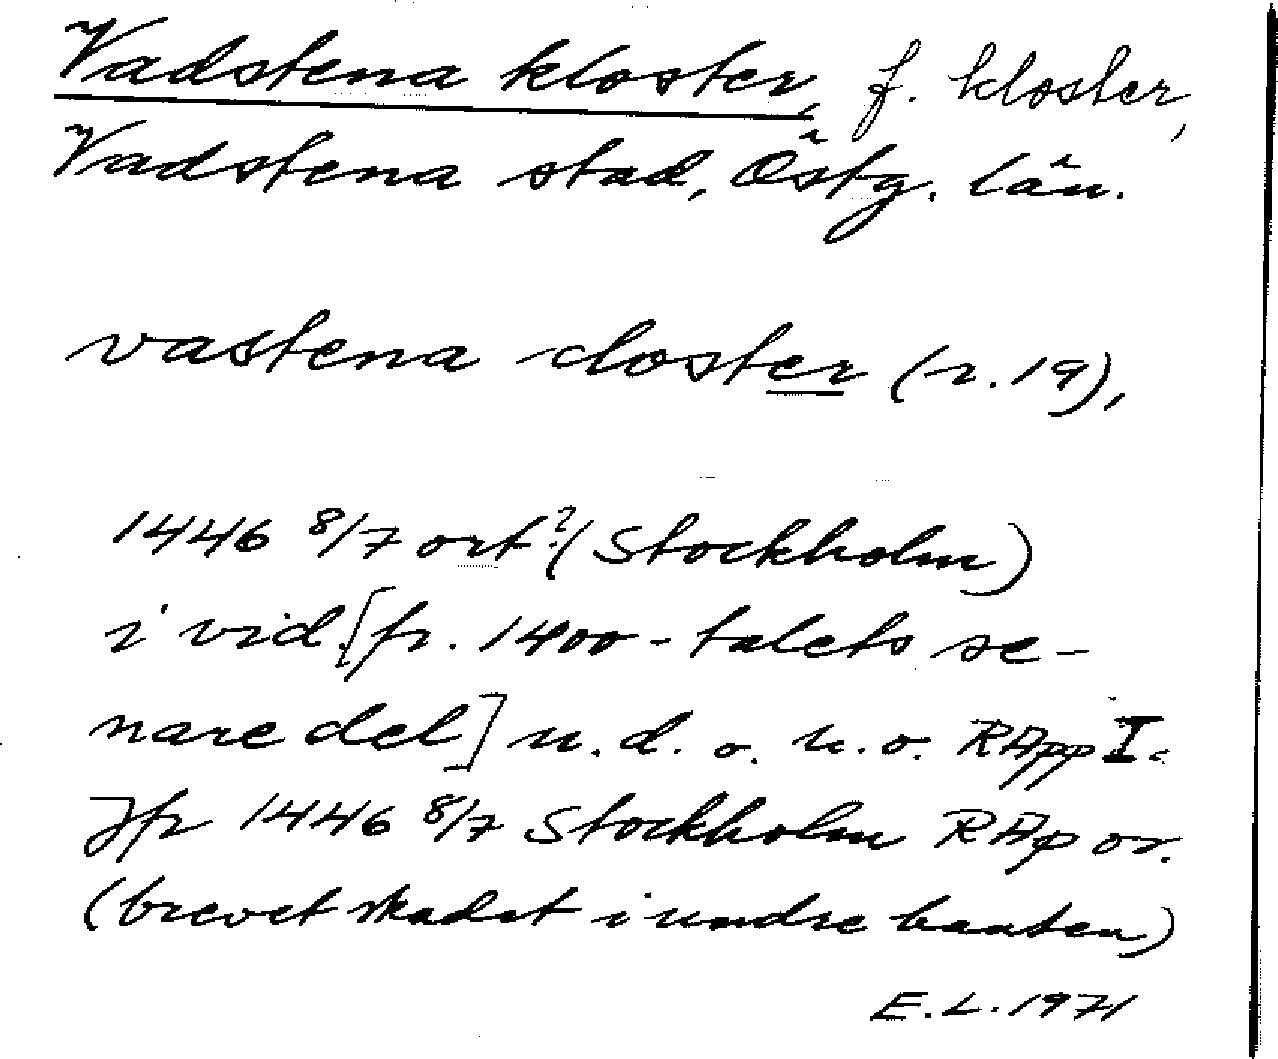 Vadstena kloster, f. kloster,
Vadstena stad, Östg. län.
vastena closter (r. 19),
1446 8/7 ort? (Stockholm)
i vid. [fr. 1400-talets se-
nare del] u. d. o. u. o. RApp I.
Jfr 1446 8/7 Stockholm RAp or.
(brevet skadat i undre kanten)
E.L. 1971